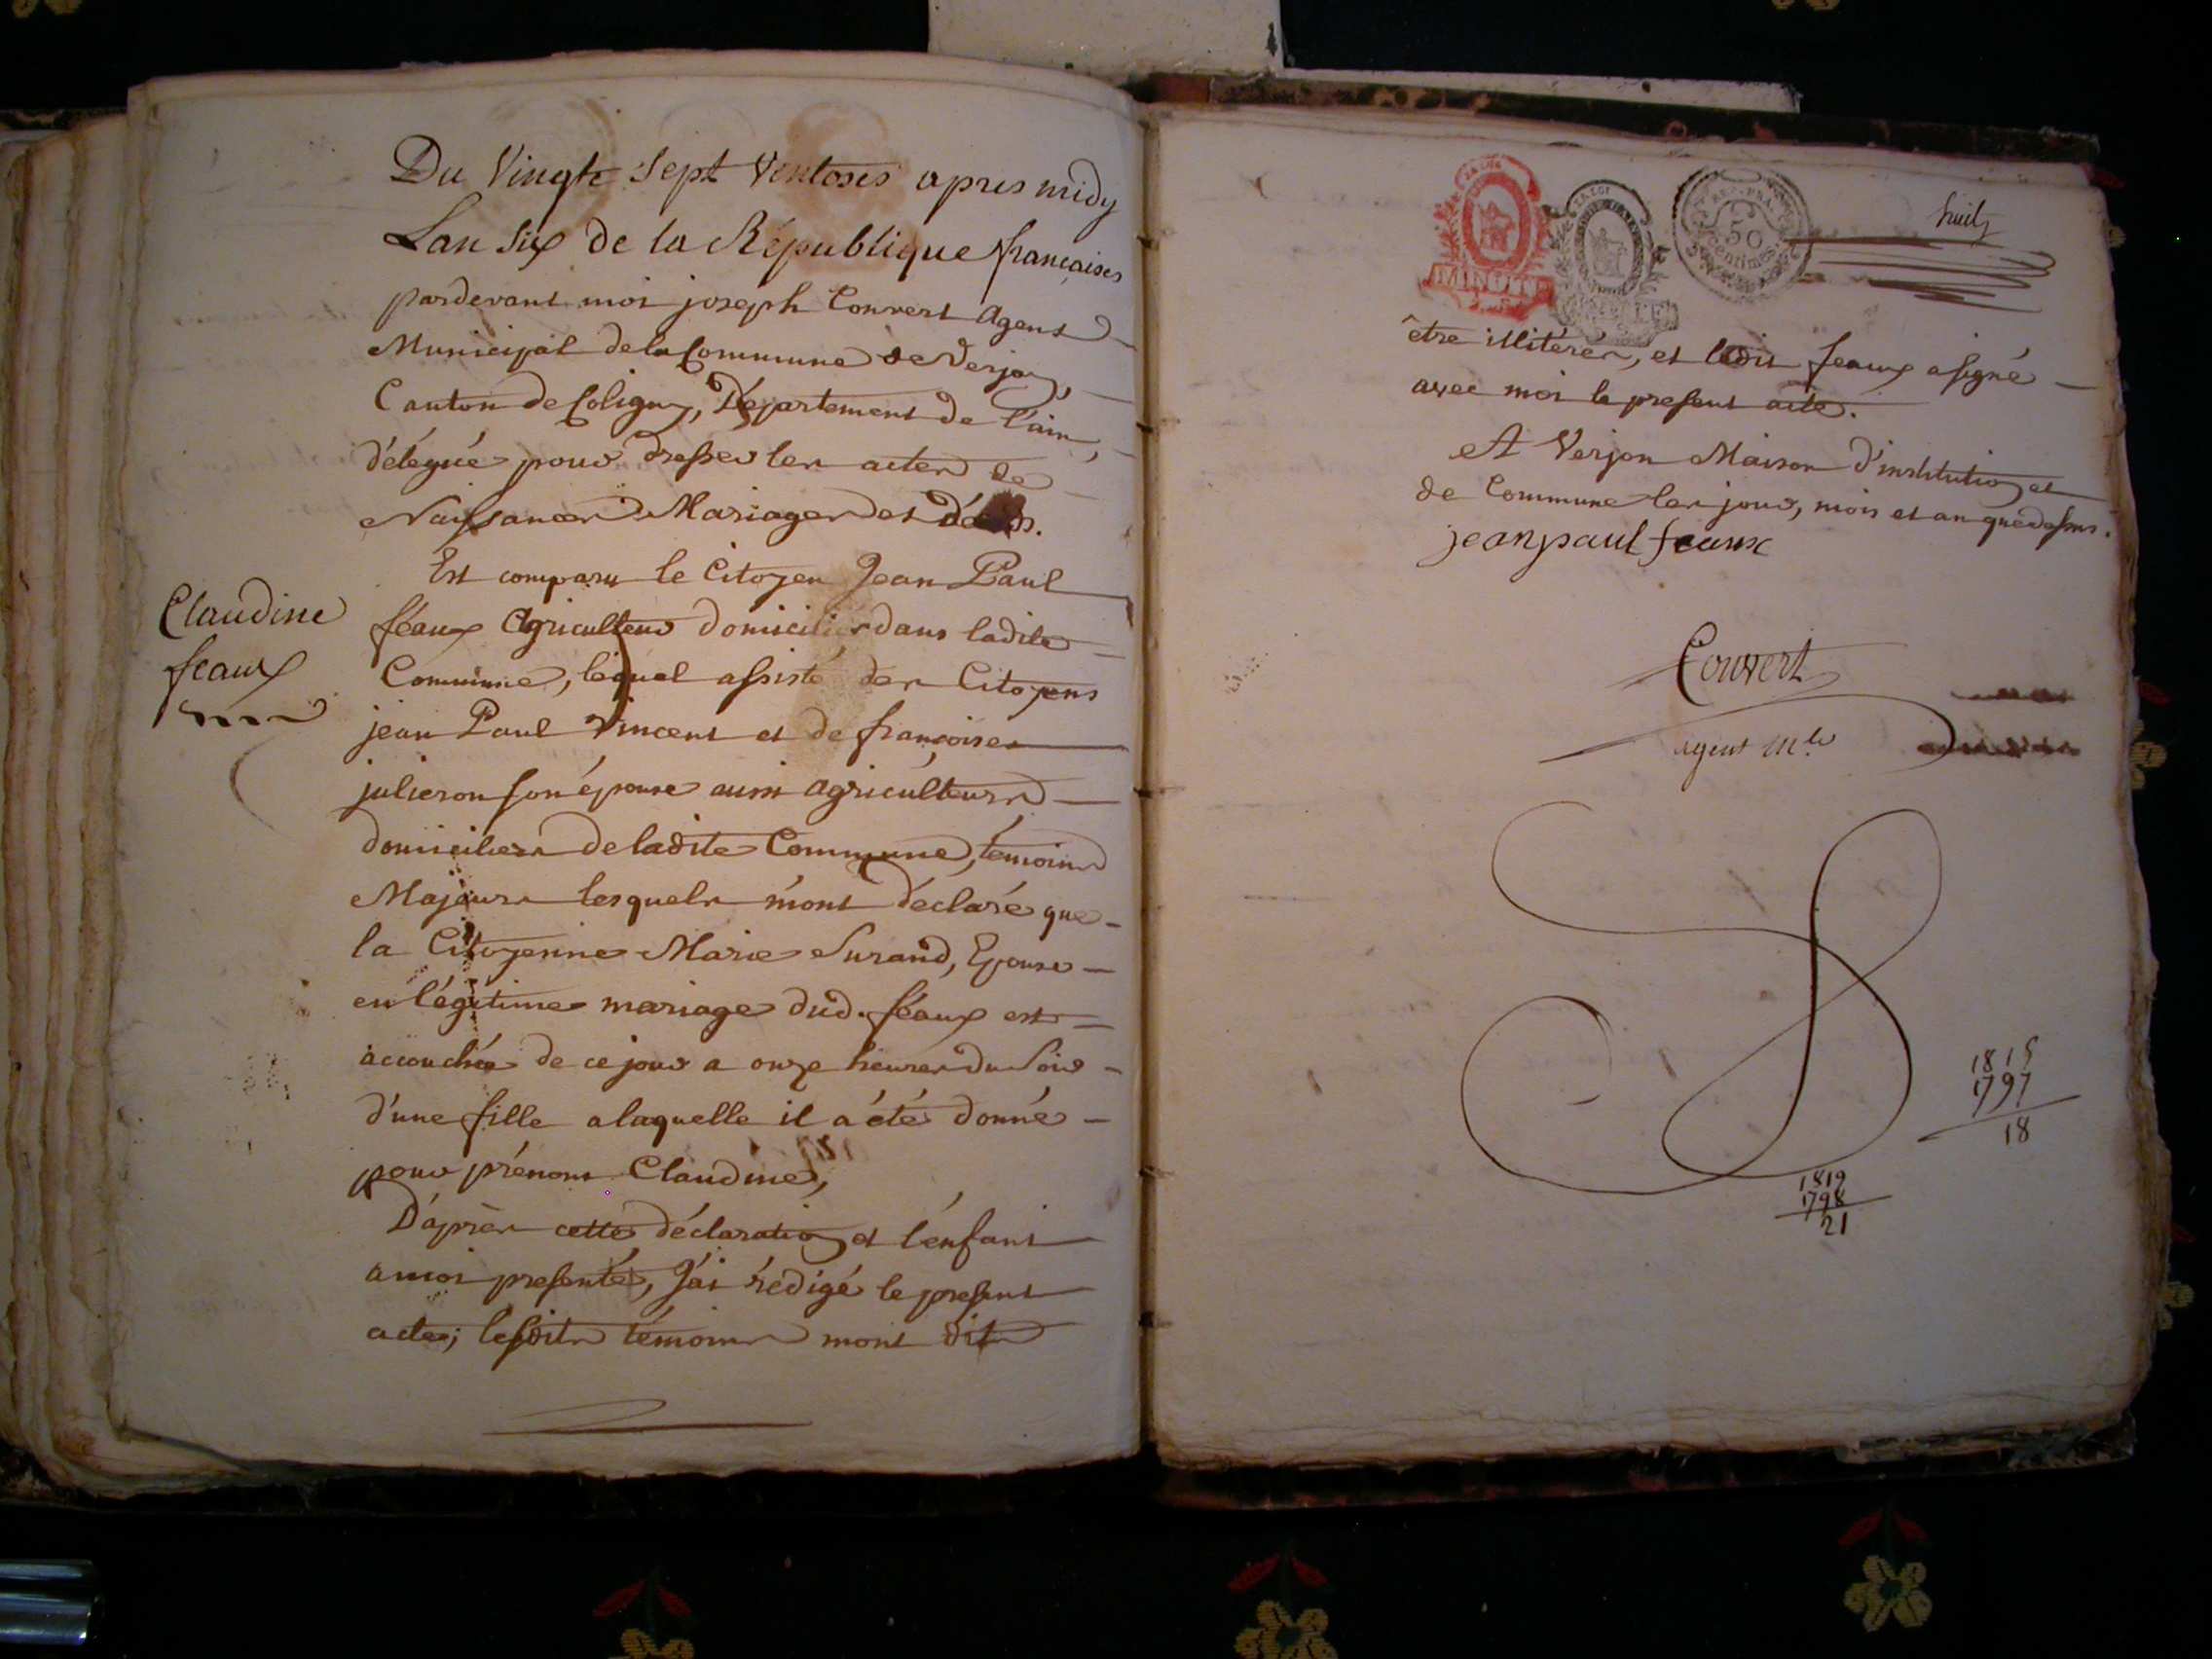 Du Vingt Sept Ventoses apres midy
Lan Six de la République françaises
pardevant moi joseph Convert Agent
Municipal de la Commune de Verjon,
Canton de Coligny, Département de l'ain,
délégué pour dresser les actes de
Naissances Mariages et décès.
Est comparu le Citoyen Jean Paul
féaux Agriculteur domicilier dans ladite
Commune, lequel assisté des Citoyens
jean Paul Vincent et de françoises
julieron son épouse aussi agriculteurs
domiciliers de ladite Commune, témoins
Majeurs lesquels m'ont déclaré que
la Citoyenne Marie Surand, Epouse
en légitime mariage dud. féaux est
accouchée de ce jour a onze heures du Soir
d'une fille a laquelle il a été donné
pour prénom Claudine,
D'après cette déclaration et l'enfant
a moi presenté, J'ai rédigé le present
acte; lesdits témoins mont dit
Claudine
feaux
MINUTE
50
Centimes
huit
être illitérés, et ledit feaux a signé
avec moi le present acte.
A Verjon Maison d'institution et
de Commune les jour, mois et an que dessus.
jean paul feaux
Convert
agent m.le
1815
1797
18
1819
1798
21